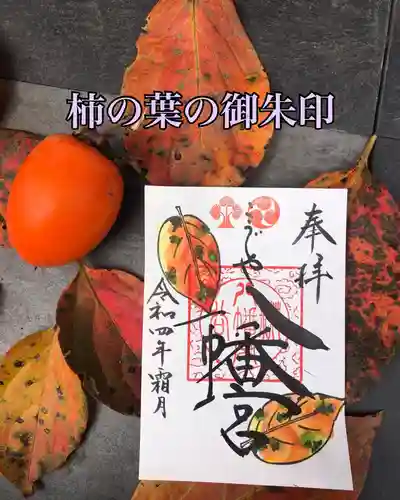 柿の葉の御朱印
奉拝
こうじや
八幡宮
令和四年霜月